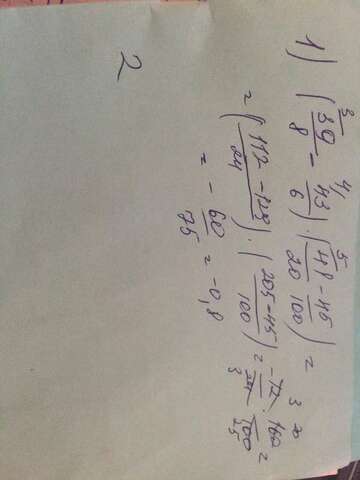 1) (39/8 - 43/6) · (41/20 - 45/100) =
= (117 - 129/24) · (205 - 45/100) = -12/24 · 160/100 =
= - 60/75 = -0,8
2